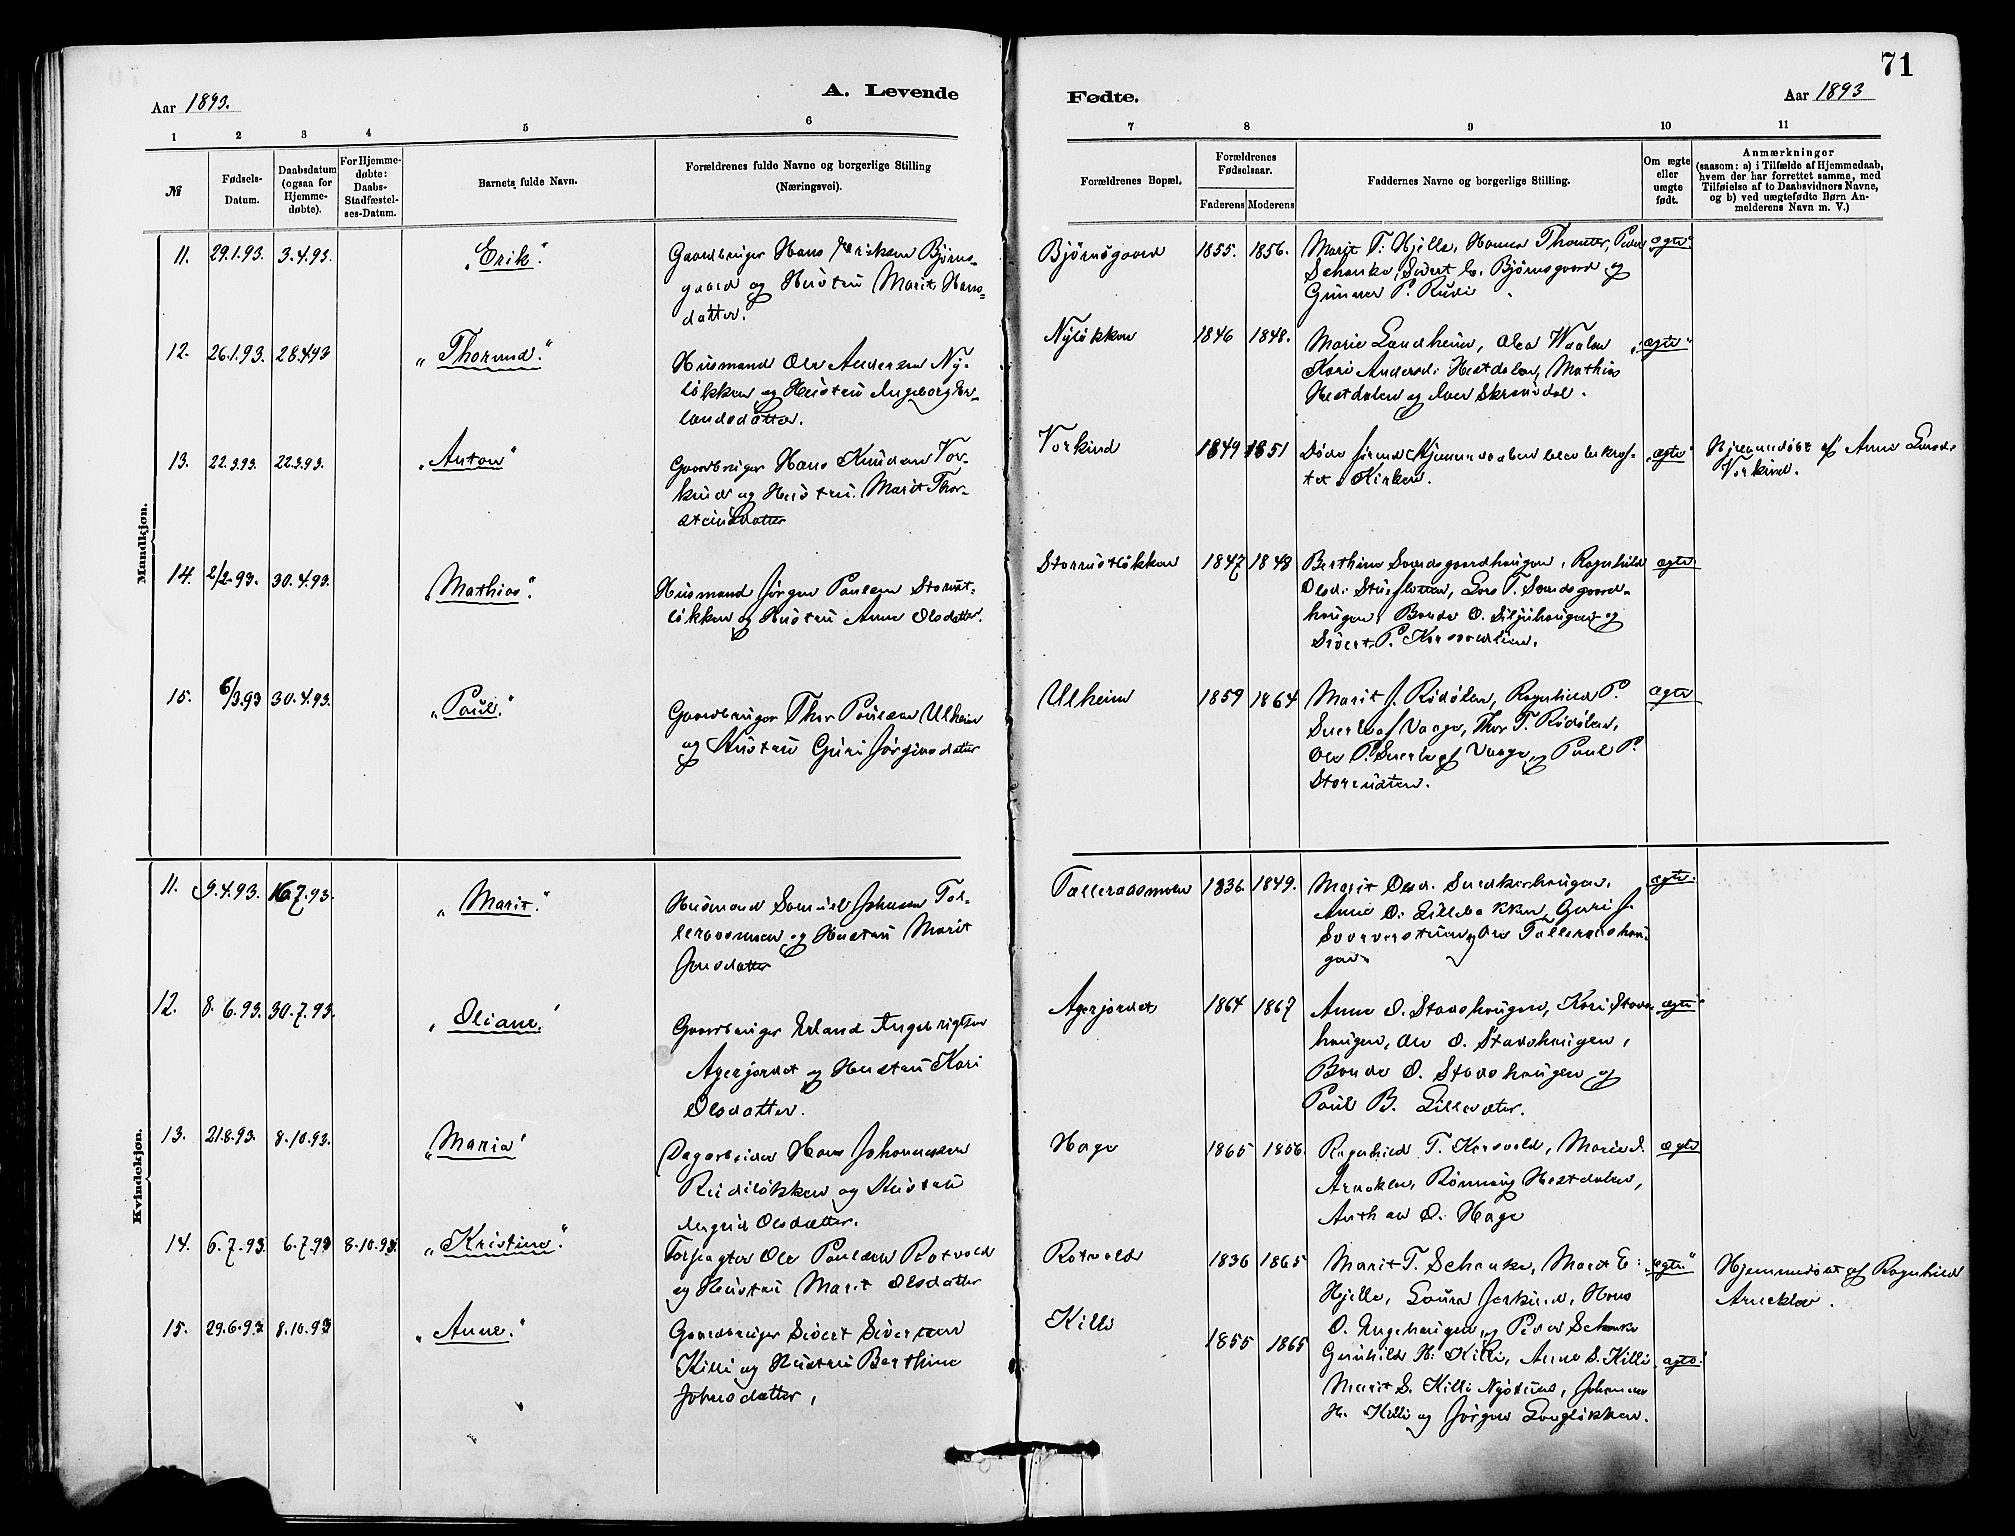 71
Aar 1893.
A. Levende
Fødte.
Aar 1893
1 2 3 4 5 6
7 8 9 10 11
№
Fødsels-
Datum.
Daabsdatum
(ogsaa for
Hjemme-
døbte).
For Hjemme-
døbte:
Daabs-
Stadfæstel-
ses-Datum.
Barnets fulde Navn.
Forældrenes fulde Navne og borgerlige Stilling
(Næringsvei).
Forældrenes Bopæl.
Forældrenes
Fødselsaar.
Faderens Moderens
Faddernes Navne og borgerlige Stilling.
Om ægte
eller
uægte
født.
Anmærkninger
(saasom: a) i Tilfælde af Hjemmedaab,
hvem der har forrettet samme, med
Tilføielse af to Daabsvidners Navne,
og b) ved uægtefødte Børn An-
melderens Navn m. V.)
Mandkjøn.
11. 29.1.93. 3.4.93. "Erik."
Gaardbruger Hans Eriksen Bjørns-
gaard og Hustru Marit Hans-
datter.
Bjørnsgaard 1855. 1856.
Marit T. Hjelle, Hanna Thomter, Peder
Schanke, Sivert E. Bjørnsgaard og
Gunner P. Rudi
ægte"
12. 26.1.93. 28.4.93 "Thorund."
Husmand Ole Andersen Ny-
løkken og Hustru Ingeborg Er-
landsdatter.
Nyløkken 1846 1848.
Marie Landheim, Olea Waalen
Kari Andersd: Hestdalen, Mathias
Hestdalen og Iver Skramdal.
"ægte"
13. 22.3.93. 22.3.93. "Anton"
Gaardbruger Hans Knudsen Vor-
kind og Hustru Marit Thor-
steinsdatter
Vorkind 1849 1851
Døde førend Hjemmedaaben blev bekræf-
tet i Kirken.
"ægte"
Hjemmedøbt af Anne Larsd.
Vorkind.
14. 2/2.93. 30.4.93. "Mathias".
Husmand Jørgen Paulsen Storrust-
løkken og Hustru Anne Olsdatter.
Storrustløkken 1847 1848
Berthine Sandsgaardhaugen, Ragnhild
Olsd: Stuefloten, Lars T. Sandsgaard-
haugen, Bonde O. Siljuhaugen og
Sivert P. Korsvoldlien.
ægte
15. 6/3.93 30.4.93. "Paul."
Gaardbruger Thor Paulsen Ulheim
og Hustru Guri Jørginsdatter
Ulheim 1859 1864
Marit J. Rødølen, Ragnhild P.
Snerle af Vaage, Thor T. Rødølen,
Ole P. Snerle af Vaage, og Paul P.
Storrudten.
ægte
Kvindekjøn.
11. 9.4.93. 16.7.93. "Marit."
Husmand Samuel Johnsen Tal-
leraasmoen og Hustru Marit
Jensdatter
Talleraasmoen 1836. 1849.
Marit Olsd. Snedkerhaugen,
Anne O. Lillebakken, Guri J.
Svarverstuen og Ole Talleraashau-
gen
ægte.
12. 8.6.93. 30.7.93. "Oliane."
Gaardbruger Erland Ingebrigtsen
Agerjordet og Hustru Kari
Olsdatter.
Agerjordet 1864 1867
Anne O. Stadshaugen, Kari Stads-
haugen, Ole O. Stadshaugen,
Bonde O. Stadshaugen og
Paul B. Lillesæter.
ægte"
13. 21.8.93. 8.10.93. "Maria"
Dagarbeider Hans Johannesen
Rudiløkken og Hustru
Ingrid Olsdatter.
Hage 1865 1856.
Ragnhild T. Korsvold, Marie I.
Arneklev, Rønnaug Hestdalen,
Anthon O. Hage
ægte
14. 6.7.93. 6.7.93 8.10.93. "Kristine."
Forpagter Ole Paulsen Rotvold
og Hustru Marit Olsdatter
Rotvold 1836 1865
Marit T. Schanke, Marit E:
Hjelle, Laura Jerkind, Hans
O. Engehaugen, og Peder Schanke
"ægte"
Hjemmedøbt af Ragnhild
Arneklev.
15. 29.6.93 8.10.93 "Anne."
Gaardbruger Sivert Sivertsen
Killi og Hustru Berthine
Johnsdatter,
Killi 1855 1865
Gunhild H: Killi, Anne S. Killi
Marit S. Killi Nystuen, Johannes
H. Killi og Jørgen Langløkken.
ægte.